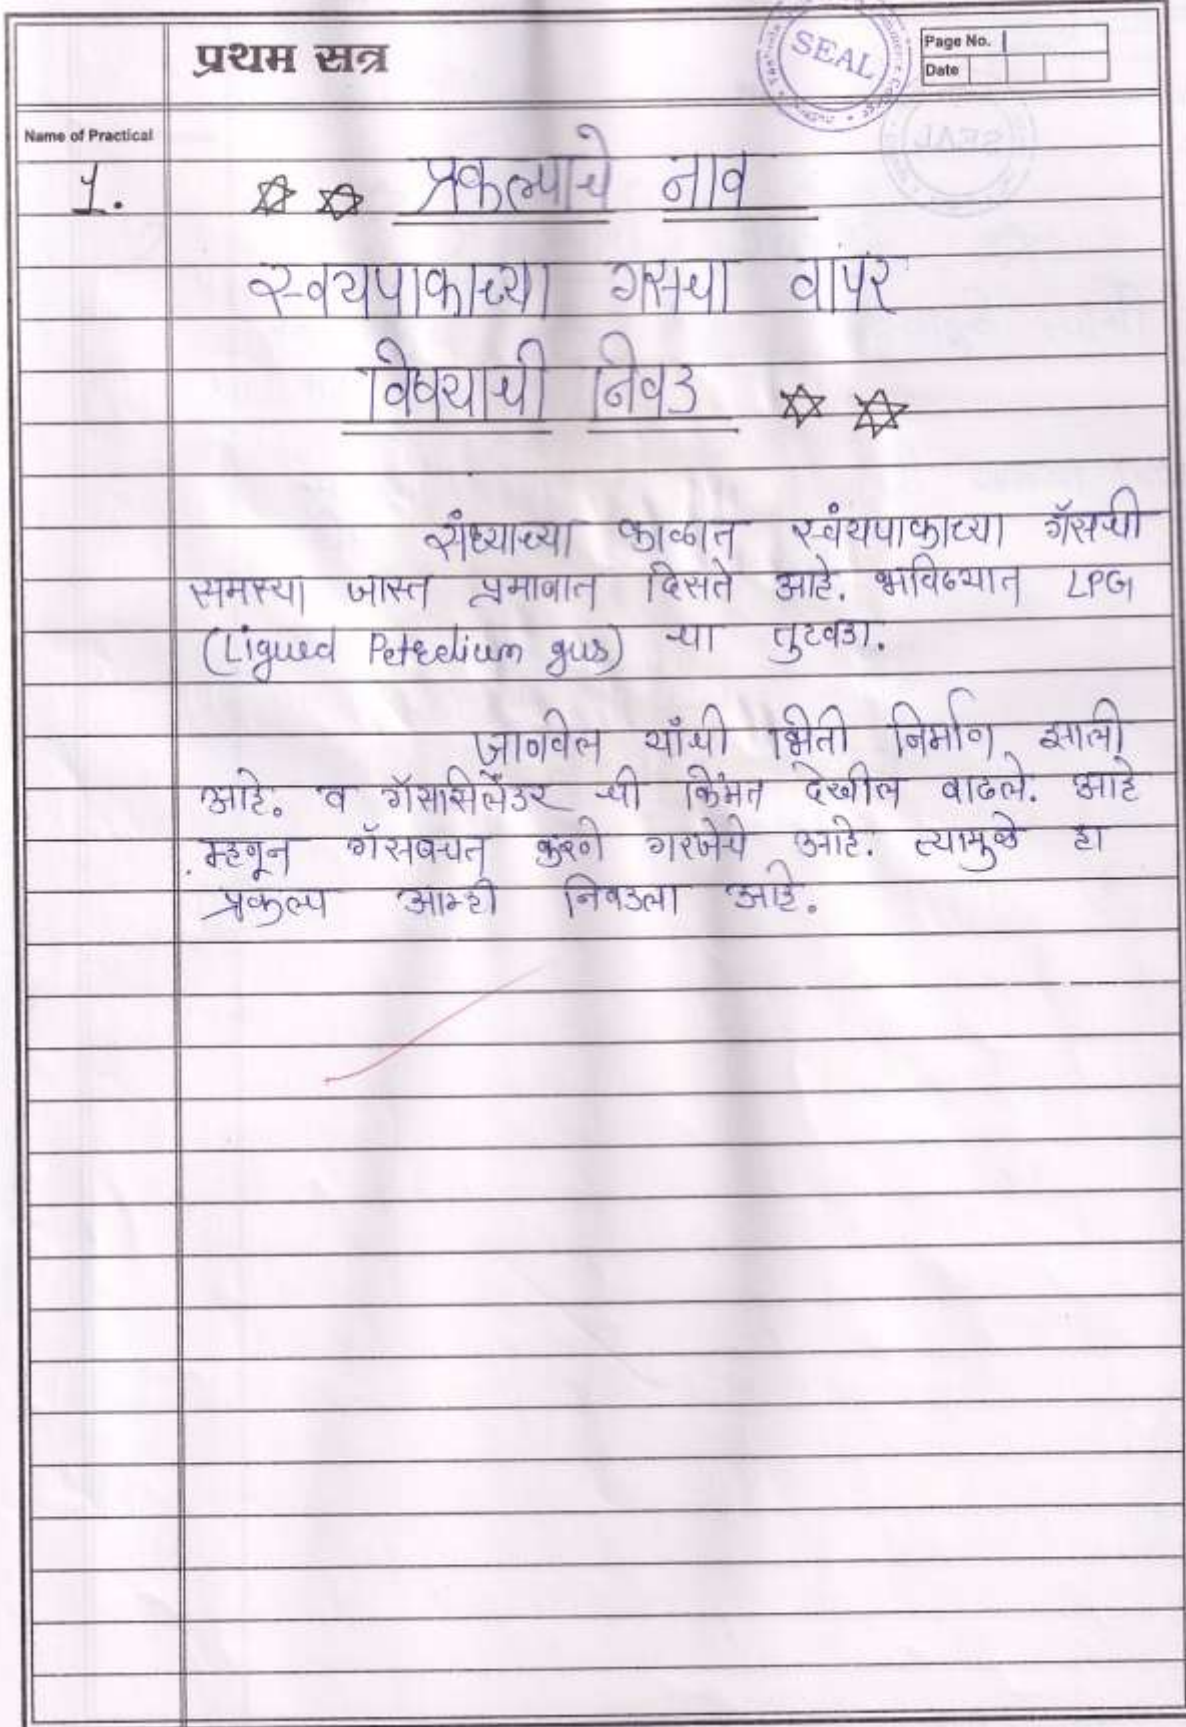 प्रथम सत्र
SEAL
Page No.
Date
Name of Practical
1.
प्रकल्पाचे नाव
स्वयपाकाच्या गसचा वापर
विषयाची निवड
संध्याच्या काळात स्वंयपाकाच्या गॅसची
समस्या जास्त प्रमाणात दिसते आहे. भविष्यात LPG
(Liqued Petrelium gus) चा तुटवडा.
जाणवेल याँची भिती निर्माण झाली
आहे. व गॅससिलेंडर ची किंमत देखील वाढले. आहे
म्हणून गॅसबचत करणे गरजेचे आहे. त्यामुळे हा
प्रकल्प आम्ही निवडला आहे.